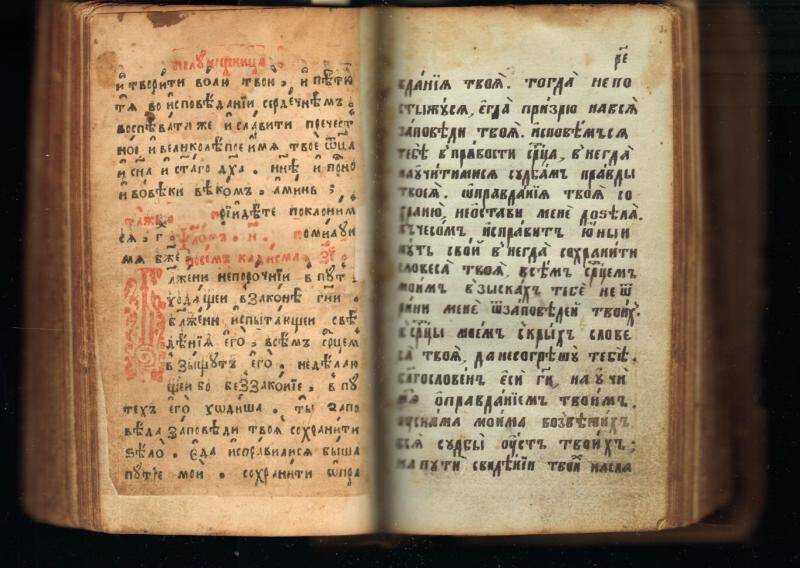 полунощница
и҆ творити волю твою̀, и҆ пѣ́ти
тѧ во и҆сповѣданїи сердечнѣмъ.
воспѣвати же и҆ славити пречест
ное и҆ великолѣпое и҆мѧ твоѐ ѿца
и҆ сн҃а и҆ ст҃аго дх҃а. нн҃ѣ и҆ при́сно
и҆ вовѣки вѣкомъ, а҆минь ;
таже прїидѣте поклоним
сѧ, г҃. ѱало́мъ. н҃. помилуи
мѧ бж҃е
лжени непорочнїи в пут
ходѧщеи в законѣ гн҃и.
блаже́ни и҆спытающеи свѣ
дѣнїѧ є҆гѡ̀, всѣмъ срц҃емъ
взыщутъ є҆го̀. не дѣлаю
щеи бо беззаконїе, в пу
техъ є҆гѡ̀ ходиша. ты̀ запо
вѣда заповѣди твоѧ̀ сохранити
ѕѣло̀. є҆да и҆справилисѧ быша
путїе мои̑. сохранити ѡ҆пра
рє҃
вданїѧ твоѧ̀. тогда̀ не по
стыжусѧ, є҆гда̀ призрю на всѧ̀
заповѣди твоѧ̀. и҆сповѣмъсѧ
тебѣ̀ в правости срц҃а, внегда̀
научитимисѧ судбамъ правды
твоеѧ̀. ѡ҆правданїѧ твоѧ̀ со
храню̀, не остави менѐ до ѕѣла̀.
в чесомъ и҆справитъ ю҆ныи
путь свои̑ внегда̀ сохранити
словеса̀ твоѧ̀. всѣмъ срц҃емъ
моимъ взыскахъ тебѐ не ѿ
рини менѐ ѿ заповѣдей твоихъ.
в срц҃ы моемъ скрыхъ слове
са̀ твоѧ̀, да не согрѣшу̀ тебѣ̀.
бл҃гословенъ є҆си̑ гд҃и, научи
мѧ ѡ҆правданїемъ твоимъ.
оустнама моима возвѣстихъ
всѧ̀ судбы̀ оустъ твоихъ ;
на пути свидѣнїи твои̑ насла